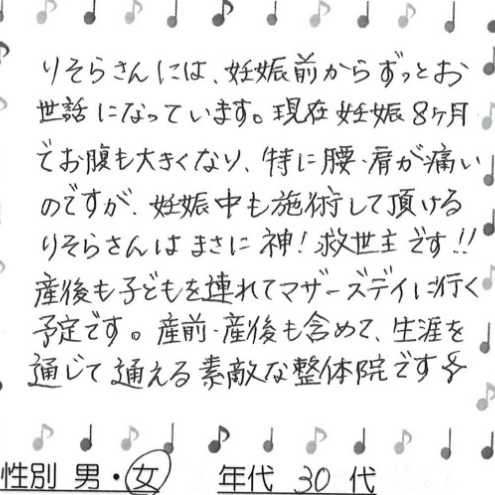 りそらさんには、妊娠前からずっとお
世話になっています。現在妊娠8ヶ月
でお腹も大きくなり、特に腰・肩が痛い
のですが、妊娠中も施術して頂ける
りそらさんはまさに神!救世主です!!
産後も子どもを連れてマザーズデイに行く
予定です。産前・産後も含めて、生涯を
通じて通える素敵な整体院です
性別 男・女 年代 30 代